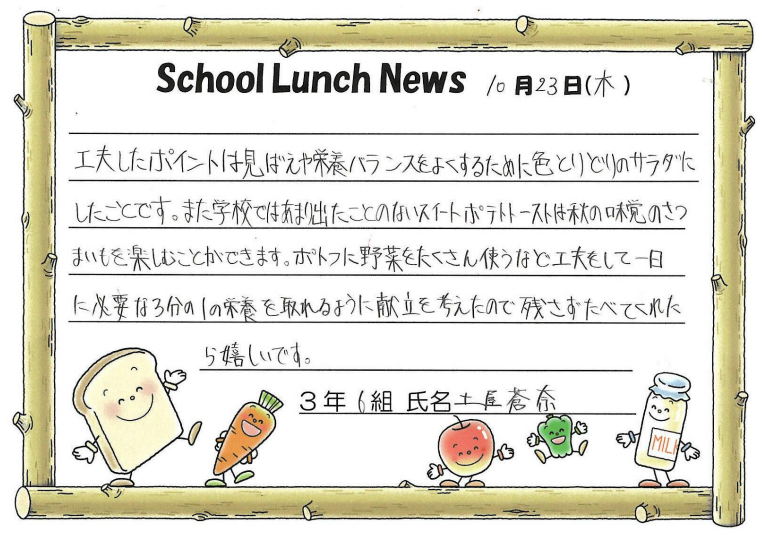 School Lunch News 10月23日(木)
工夫したポイントは見ばえや栄養バランスをよくするために色とりどりのサラダに
したことです。また学校ではあまり出たことのないスイートポテトトーストは秋の味覚のさつ
まいもを楽しむことができます。ポトフに野菜をたくさん使うなど工夫をして一日
に必要な3分の1の栄養を取れるように献立を考えたので残さずたべてくれた
ら嬉しいです。
3年6組 氏名 土屋蒼奈
MILK